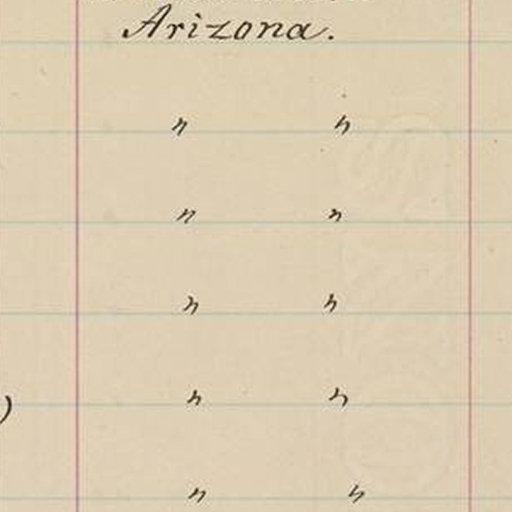 Arizona.
" "
" "
" "
) " "
" "